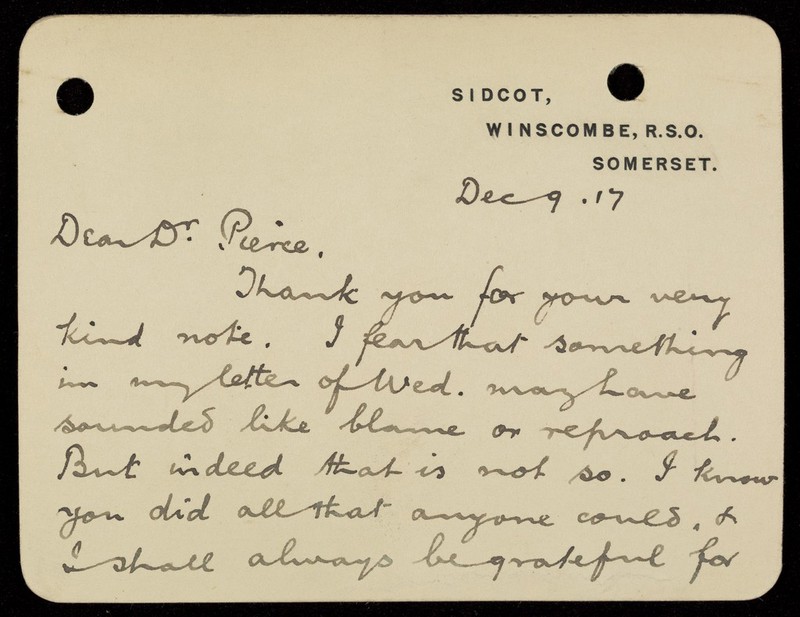 SIDCOT,
WINSCOMBE, R.S.O.
SOMERSET.
Dec 9. 17
Dear Dr. Pierce.
Thank you for your very
kind note. I fear that something
in my letter of Wed. may have
sounded like blame or reproach.
But indeed that is not so. I know
you did all that anyone could, &
I shall always be grateful for